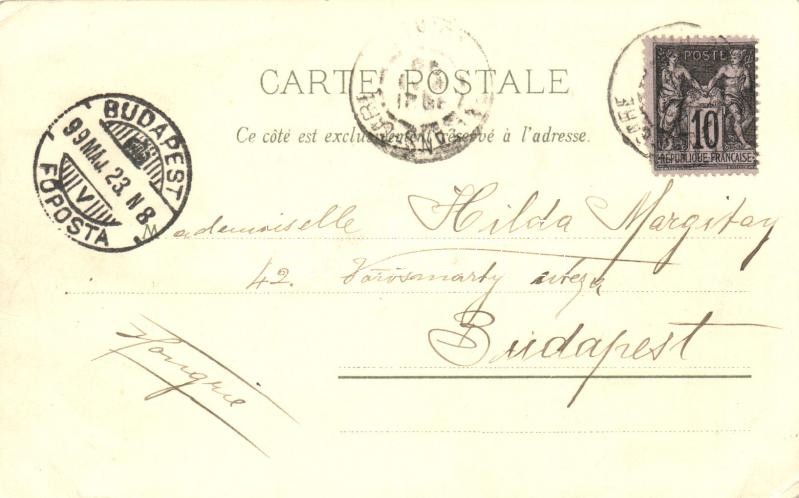 CARTE POSTALE
Ce côté est exclusivement réservé à l'adresse.
POSTE
10
RÉPUBLIQUE FRANÇAISE
BUDAPEST
99 MAJ. 23. N 8
V
FŐPOSTA
Mademoiselle Hilda Margitay
42. Vörösmarty utcza
Budapest
Hongrie